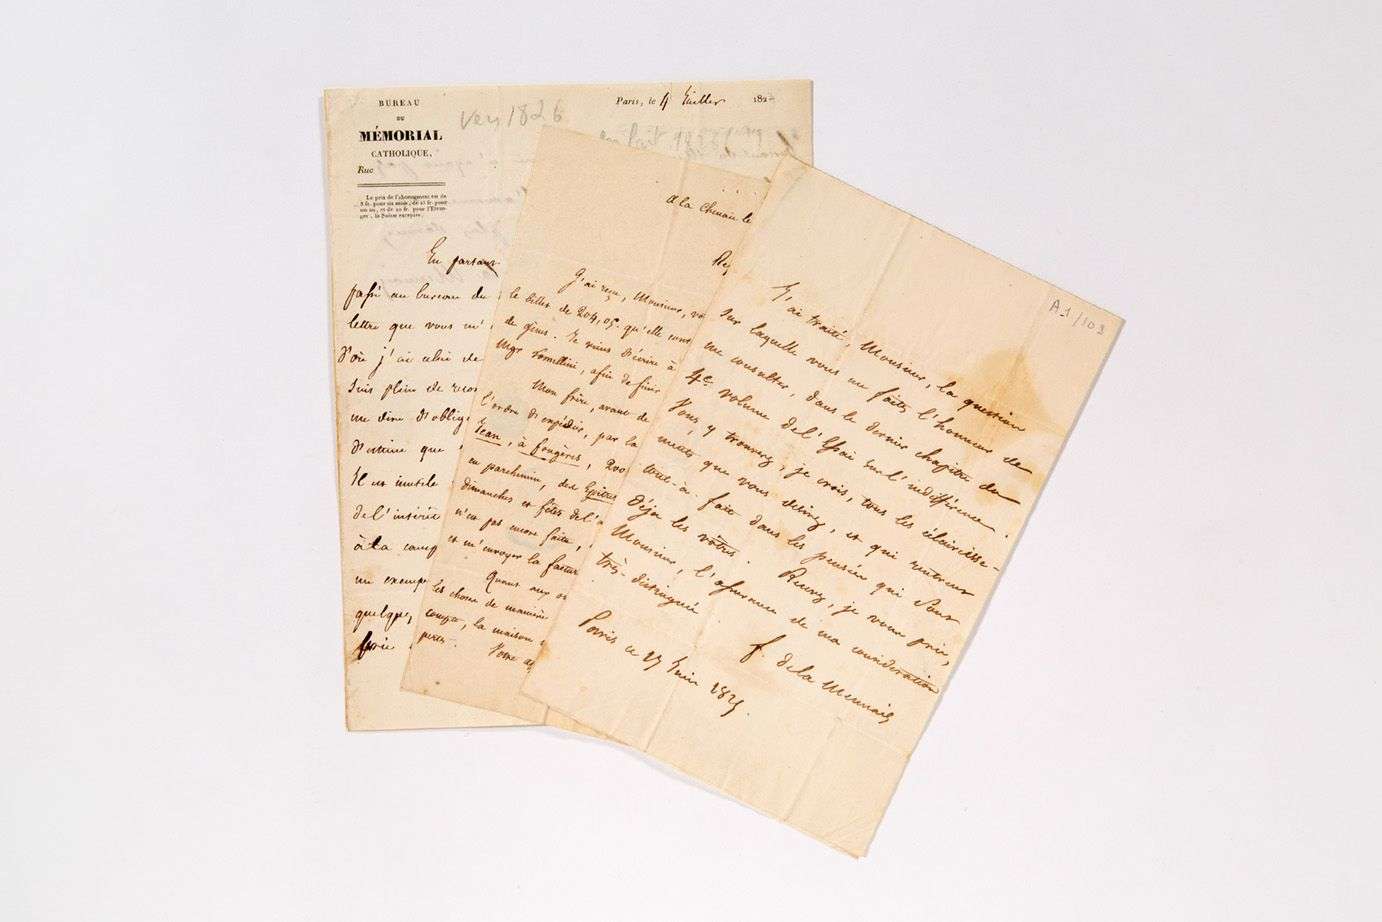 BUREAU
DU
MÉMORIAL
CATHOLIQUE,
Rue
Le prix de l'abonnement est de
8 fr. pour six mois, de 15 fr. pour
un an, et de 20 fr. pour l'Étran-
ger, la Suisse exceptée.
Paris, le 4 Juillet 182
vers 1826
En partant
passé au bureau du
lettre que vous m'
J'ai
suis plein de
me dire d'oblig
d'estime que
Il est inutile
de l'insérer
à la camp
un exemp
quelque
à la Chenaie le
J'ai reçu, Monsieur, vo
le billet de 204,05 qu'elle cont
de gens. Je viens d'écrire à
Mgr Tomellini, afin de finir
Mon frère, avant de
l'ordre d'expédier, par la
Jean, à Fougères, 200
en parchemin, des Epitres
dimanches et fêtes de l'a
n'est pas encore faite,
et m'envoyer la factur
Quant aux
les choses de manière
compte, la maison
perte.
Votre
A1/103
J'ai traité, Monsieur, la question
sur laquelle vous me faites l'honneur de
me consulter, dans le dernier chapitre du
4e volume de l'Essai sur l'indifférence.
Vous y trouverez, je crois, tous les éclaircisse-
mens que vous desirez, et qui rentrent
tout-à-fait dans les pensées qui sont
déjà les vôtres. Recevez, je vous prie,
Monsieur, l'assurance de ma considération
très-distinguée
F. de la Mennais
Paris ce 27 Juin 1825.